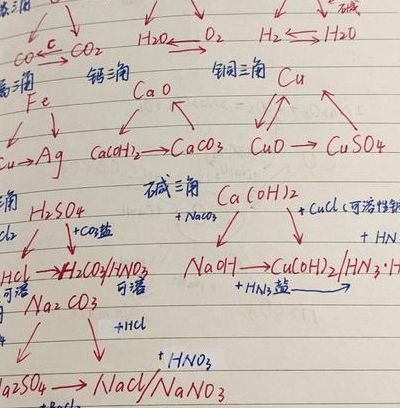 三角
碱
CO C CO2 H2O O2 H2 H2O
三角 钙三角 铜三角
Fe CaO Cu
Ag Ca(OH)2 CaCO3 CuO CuSO4
三角 碱三角
H2SO4 Ca(OH)2
+CO3盐 +NaCO3 +CuCl(可溶性
+HN
HCl H2CO3/HNO3 NaOH Cu(OH)2/HN3·H
可溶 可溶 +HN3盐
Na2CO3
+HCl
+HNO3
a2SO4 NaCl/NaNO3